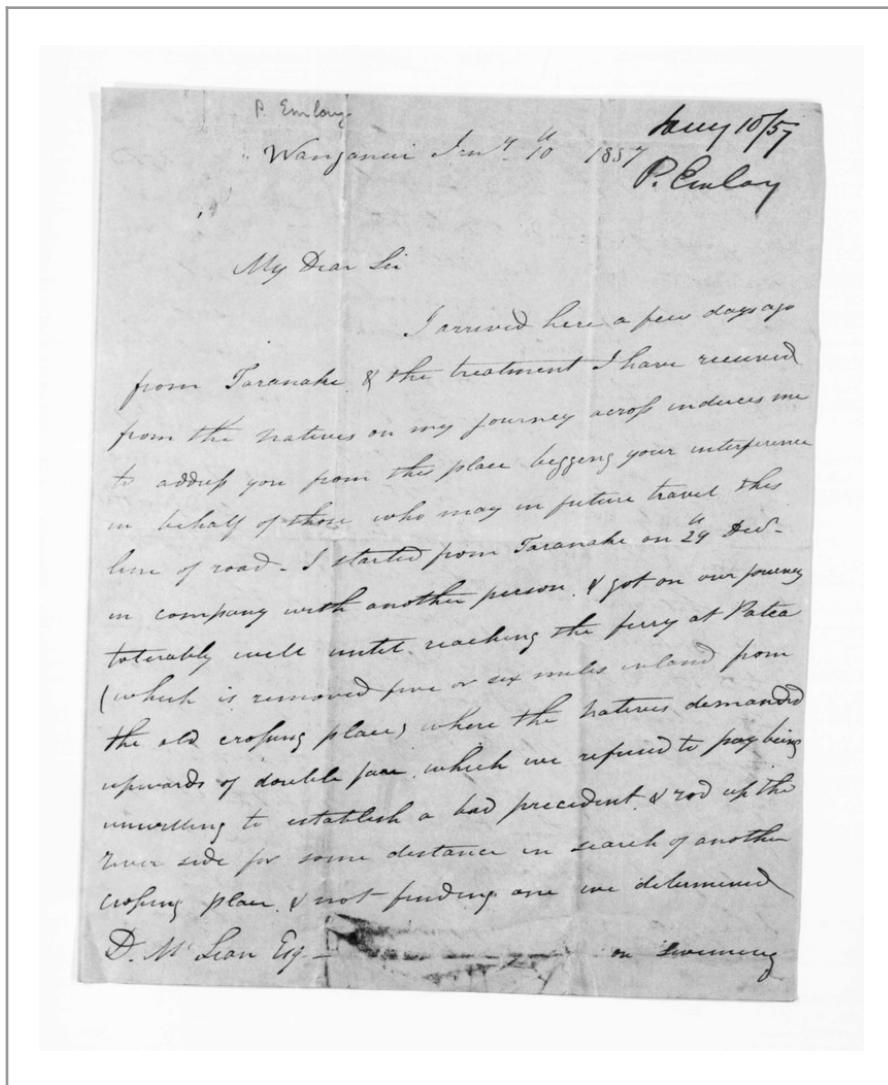 P. Emlay
Jany 10/57
P. Emlay
Wanganui Jany. 10th 1857
My Dear Sir
I arrived here a few days ago
from Taranake & the treatment I have received
from the natives on my journey across induces me
to address you from this place begging your interference
in behalf of those who may in future travel this
line of road - I started from Taranake on 29th Decr -
in company with another person. & got on our journey
tolerably well until reaching the ferry at Patea
(which is removed five or six miles inland from
the old crossing place) where the natives demanded
upwards of double fare. which we refused to pay being
unwilling to establish a bad precedent. & rod up the
river side for some distance in search of another
crossing place. & not finding one we determined
D. McLean Esq - on swimming